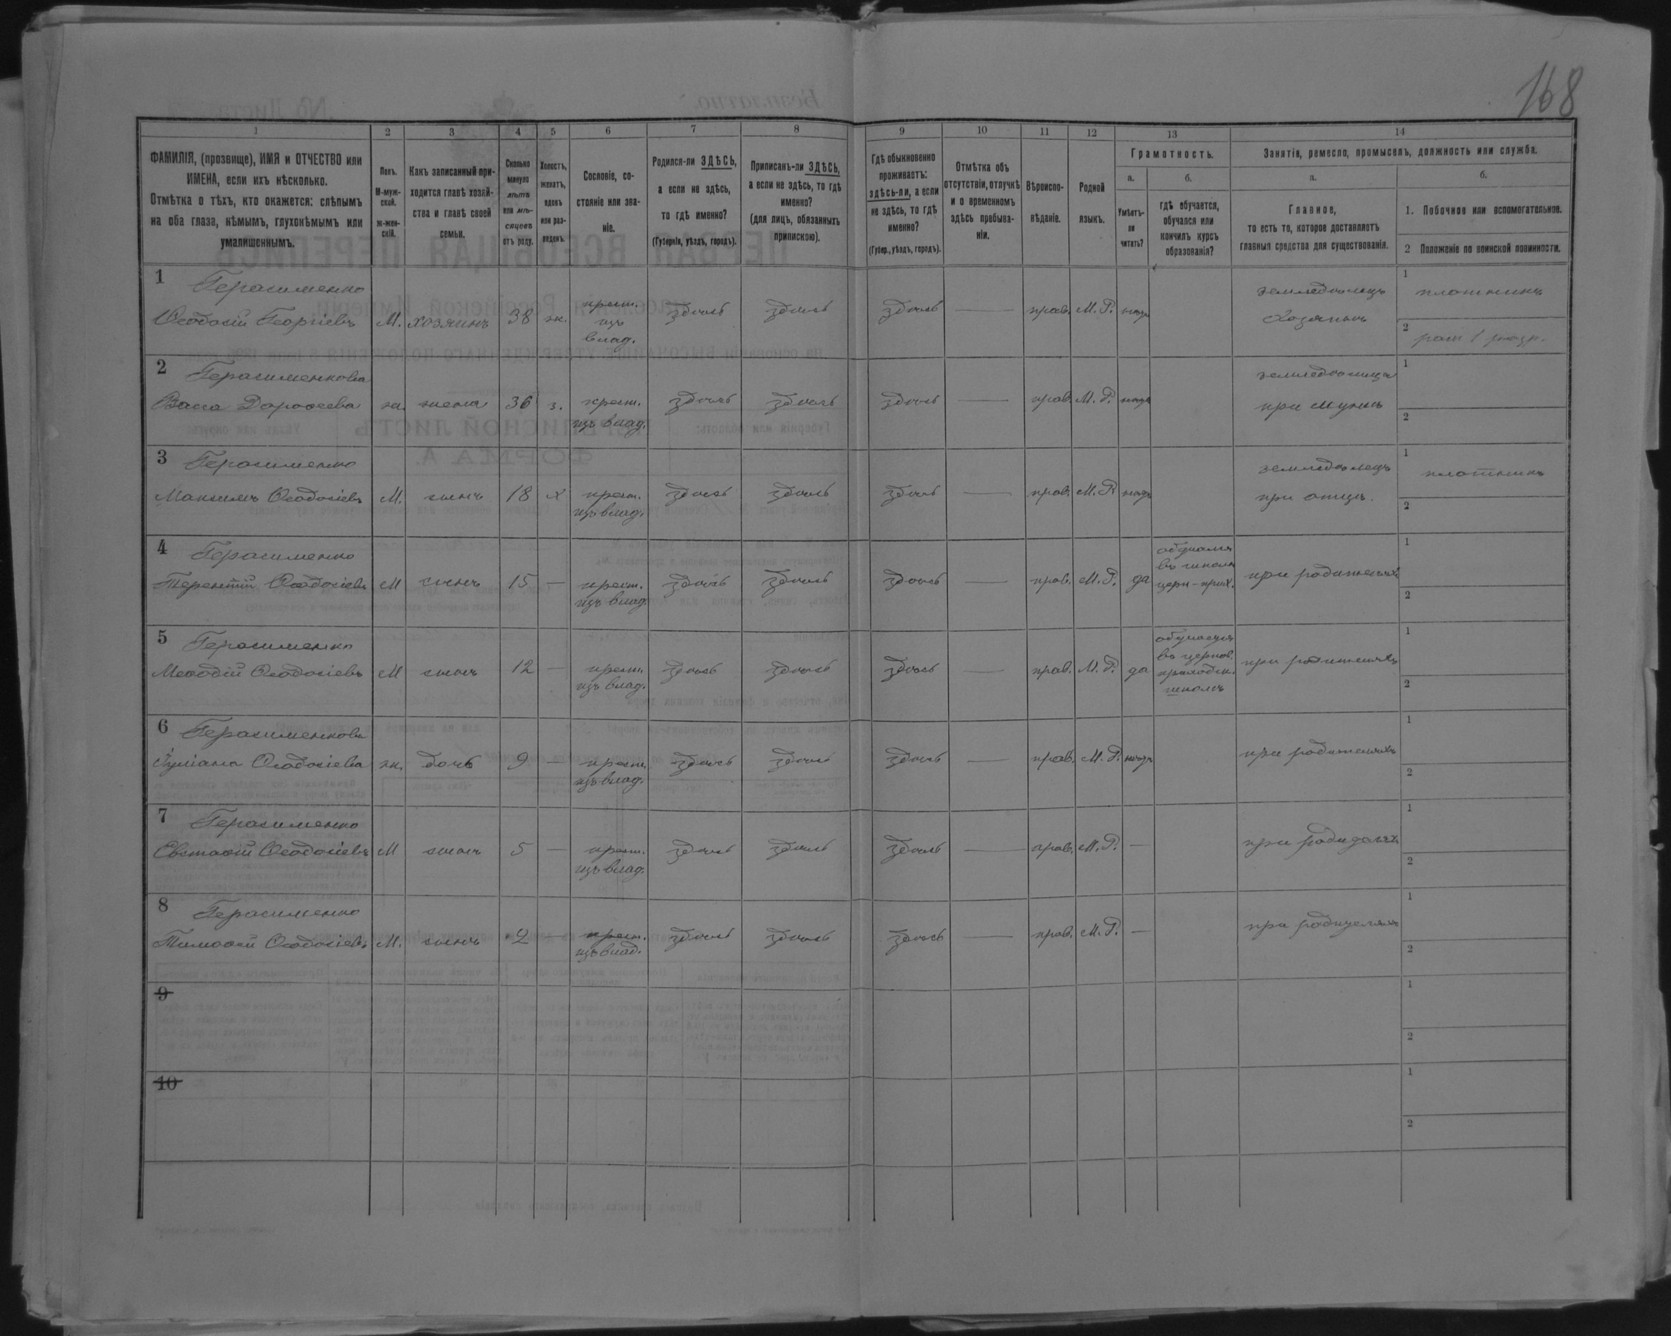 168
1 2 3 4 5 6 7 8 9 10 11 12 13 14
ФАМИЛІЯ, (прозвище), ИМЯ и ОТЧЕСТВО или
ИМЕНА, если ихъ нѣсколько.
Отмѣтка о тѣхъ, кто окажется: слѣпымъ
на оба глаза, нѣмымъ, глухонѣмымъ или
умалишеннымъ.
Полъ.
М-муж-
ской.
ж-жен-
скій.
Какъ записанный при-
ходится главѣ хозяй-
ства и главѣ своей
семьи.
Сколько
минуло
лѣтъ
или мѣ-
сяцевъ
отъ роду.
Холостъ,
женатъ,
вдовъ
или раз-
веденъ.
Сословіе, со-
стояніе или зва-
ніе.
Родился-ли ЗДѢСЬ,
а если не здѣсь,
то гдѣ именно?
(Губернія, уѣздъ, городъ).
Приписанъ-ли ЗДѢСЬ,
а если не здѣсь, то гдѣ
именно?
(для лицъ, обязанныхъ
припискою).
Гдѣ обыкновенно
проживаетъ:
здѣсь-ли, а если
не здѣсь, то гдѣ
именно?
(Губер., уѣздъ, городъ).
Отмѣтка объ
отсутствіи, отлучкѣ
и о временномъ
здѣсь пребыва-
ніи.
Вѣроиспо-
вѣданіе.
Родной
языкъ.
Грамотность.
а.
Умѣетъ-
ли
читать?
б.
гдѣ обучается,
обучался или
кончилъ курсъ
образованія?
Занятіе, ремесло, промыселъ, должность или служба.
а.
Главное,
то есть то, которое доставляетъ
главныя средства для существованія.
б.
1. Побочное или вспомогательное.
2 Положеніе по воинской повинности.
1 Герасименко
Ѳеодосій Георгіевъ М. хозяинъ 38 ж. крест. изъ влад. здѣсь здѣсь здѣсь — прав. М. Р. нѣтъ земледѣлецъ хозяинъ 1 плотникъ
2 рат. 1 разр.
2 Герасименкова
Васа Дороѳеева ж. жена 36 з. крест. изъ влад. здѣсь здѣсь здѣсь прав. М. Р. нѣтъ земледѣлица при мужѣ 1
2
3 Герасименко
Максимъ Ѳеодосіевъ М. сынъ 18 х крест. изъ влад. здѣсь здѣсь здѣсь — прав. М. Р. нѣтъ земледѣлецъ при отцѣ. 1 плотникъ
2
4 Герасименко
Терентій Ѳеодосіевъ М сынъ 15 — крест. изъ влад. здѣсь здѣсь здѣсь — прав. М. Р. да обучался въ школѣ церк-прих. при родителяхъ 1
2
5 Герасименко
Меѳодій Ѳеодосіевъ М сынъ 12 — крест. изъ влад. здѣсь здѣсь здѣсь — прав. М. Р. да обучается въ церков. приходск. школѣ при родителяхъ 1
2
6 Герасименкова
Іуліана Ѳеодосіева ж. дочь 9 — крест. изъ влад. здѣсь здѣсь здѣсь — прав. М. Р. нѣтъ при родителяхъ 1
2
7 Герасименко
Ѳеодосіевъ М сынъ 5 — крест. изъ влад. здѣсь здѣсь здѣсь — прав. М. Р. — при родителяхъ 1
2
8 Герасименко
Тимоѳей Ѳеодосіевъ М. сынъ 2 крест. изъ влад. здѣсь здѣсь здѣсь — прав. М. Р. — при родителяхъ 1
2
9 1
2
10 1
2